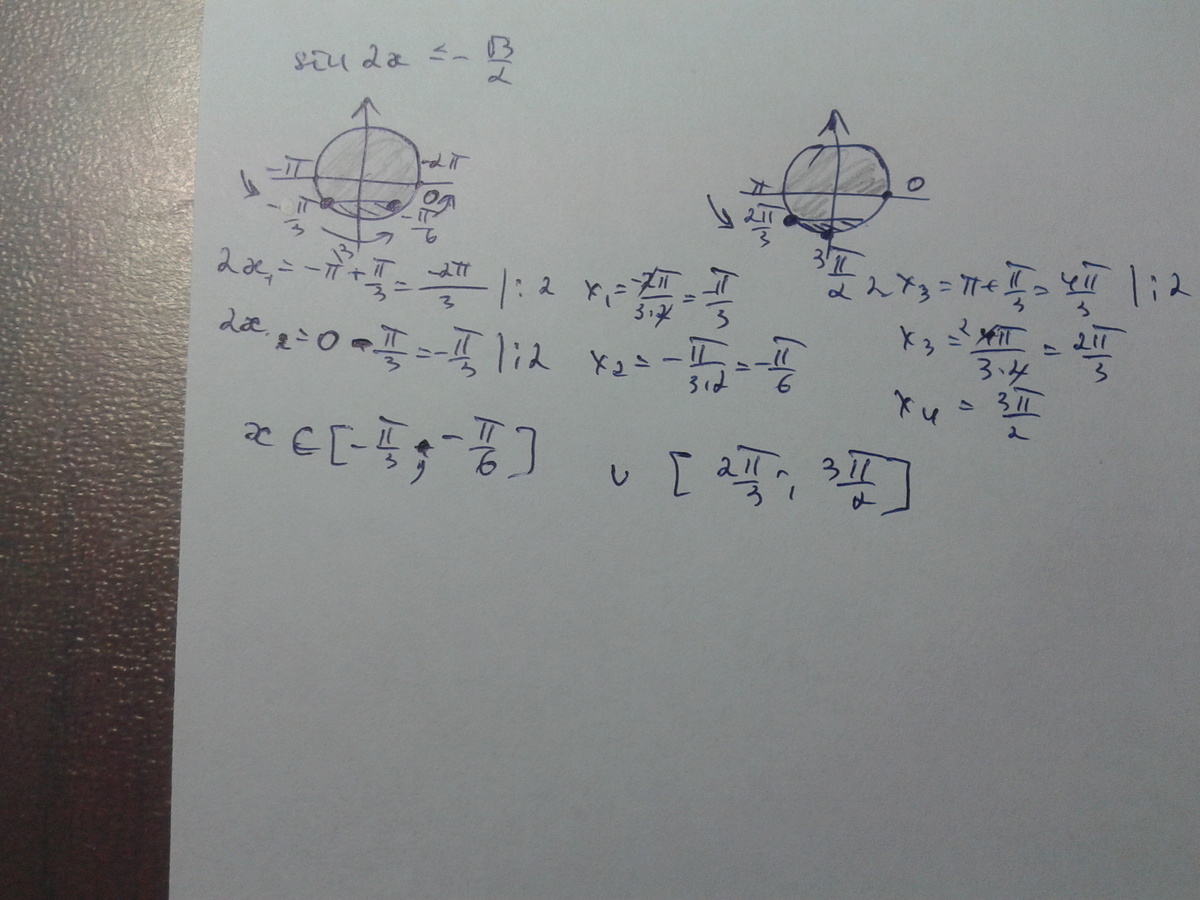 sin 2x ≤ - √3/2
-π -2π 0
-π/3 -π/6
π 0
2π/3 3π/2
2x₁ = -π + π/3 = -2π/3 | : 2 x₁ = -2π/3·2 = -π/3
2x₂ = 0 - π/3 = -π/3 | : 2 x₂ = -π/3·2 = -π/6
2x₃ = π + π/3 = 4π/3 | : 2
x₃ = 4π/3·2 = 2π/3
x₄ = 3π/2
x ∈ [-π/3 ; -π/6] ∪ [2π/3 ; 3π/2]